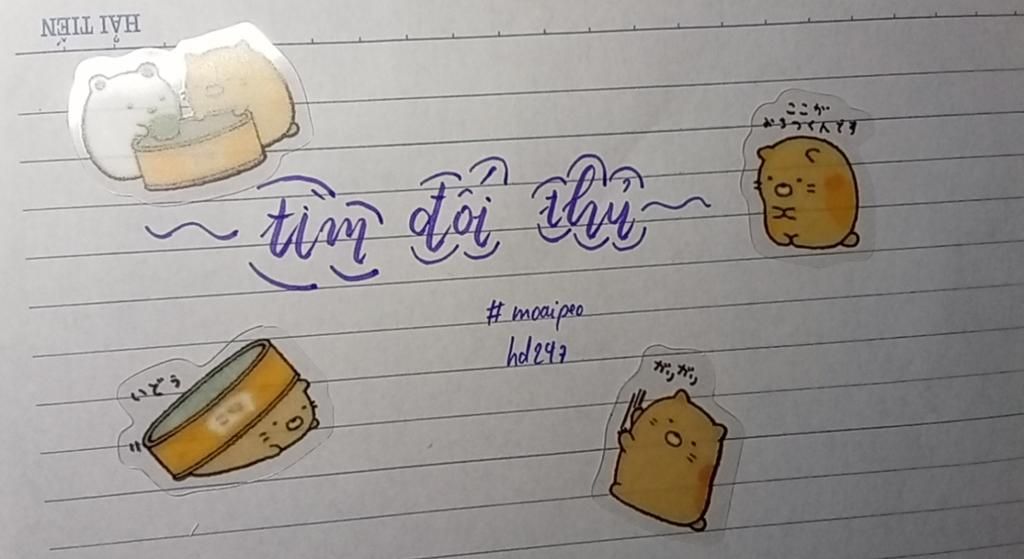 HẢI TIẾN
ここが
おきつくんです
~ tìm đối thủ ~
# moaipeo
hd247
いどう
ガリガリ